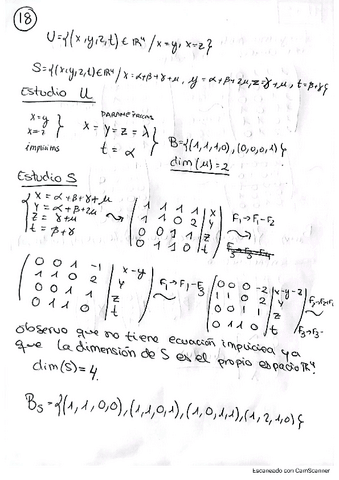 18
U={(x,y,z,t)∈ℝ⁴ / x=y, x=z}
S={(x,y,z,t)∈ℝ⁴ / x=α+β+γ+μ, y=α+β+2μ, z=γ+μ, t=β+γ}
Estudio U
x=y
x=z
implícitas
PARAMÉTRICAS
x=y=z=λ
t=α
B={(1,1,1,0),(0,0,0,1)}
dim(U)=2
Estudio S
x=α+β+γ+μ
y=α+β+2μ
z=γ+μ
t=β+γ
1 1 1 1 | x
1 1 0 2 | y
0 0 1 1 | z
0 1 1 0 | t
F₁→F₁-F₂
0 0 1 -1 | x-y
1 1 0 2 | y
0 0 1 1 | z
0 1 1 0 | t
F₁→F₁-F₃
0 0 0 -2 | x-y-z
1 1 0 2 | y
0 0 1 1 | z
0 1 1 0 | t
observo que no tiene ecuación implícita ya
que la dimensión de S es el propio espacio ℝ⁴.
dim(S)=4.
B_S={(1,1,0,0),(1,1,0,1),(1,0,1,1),(1,2,1,0)}
Escaneado con CamScanner